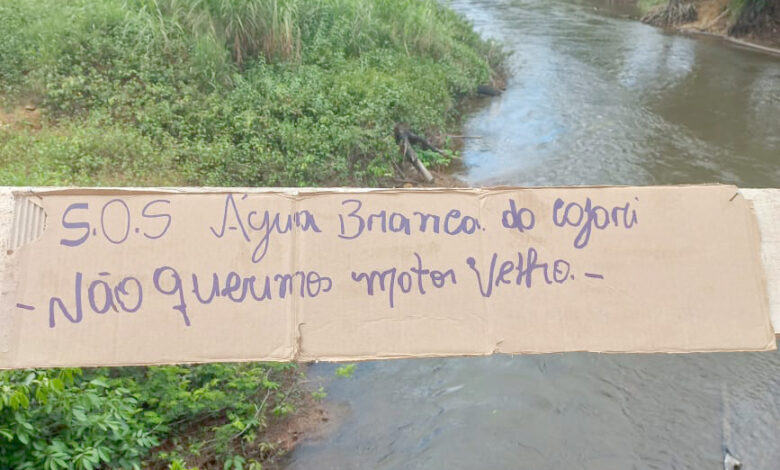 S.O.S Água Branca. do cajari
- Não Querimos motor Velho. -